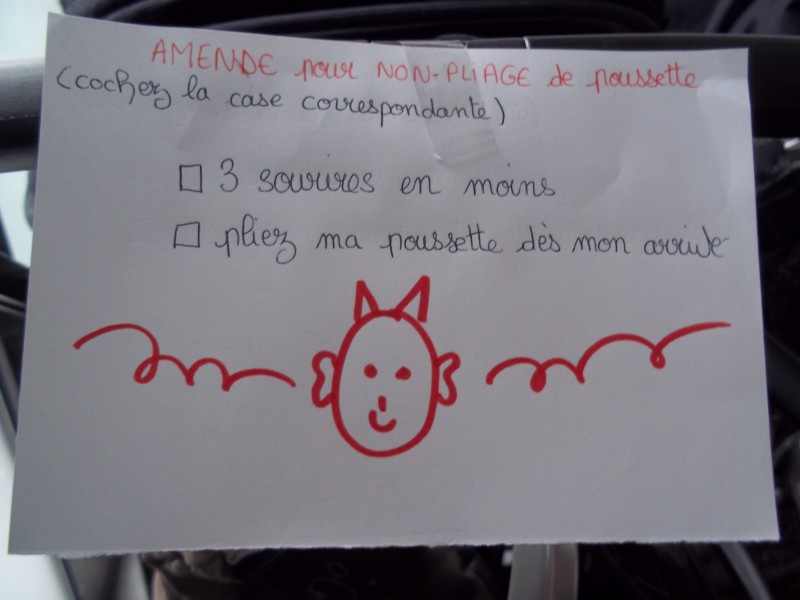 AMENDE pour NON-PLIAGE de poussette
(cochez la case correspondante)
3 sourires en moins
pliez ma poussette dès mon arrivée